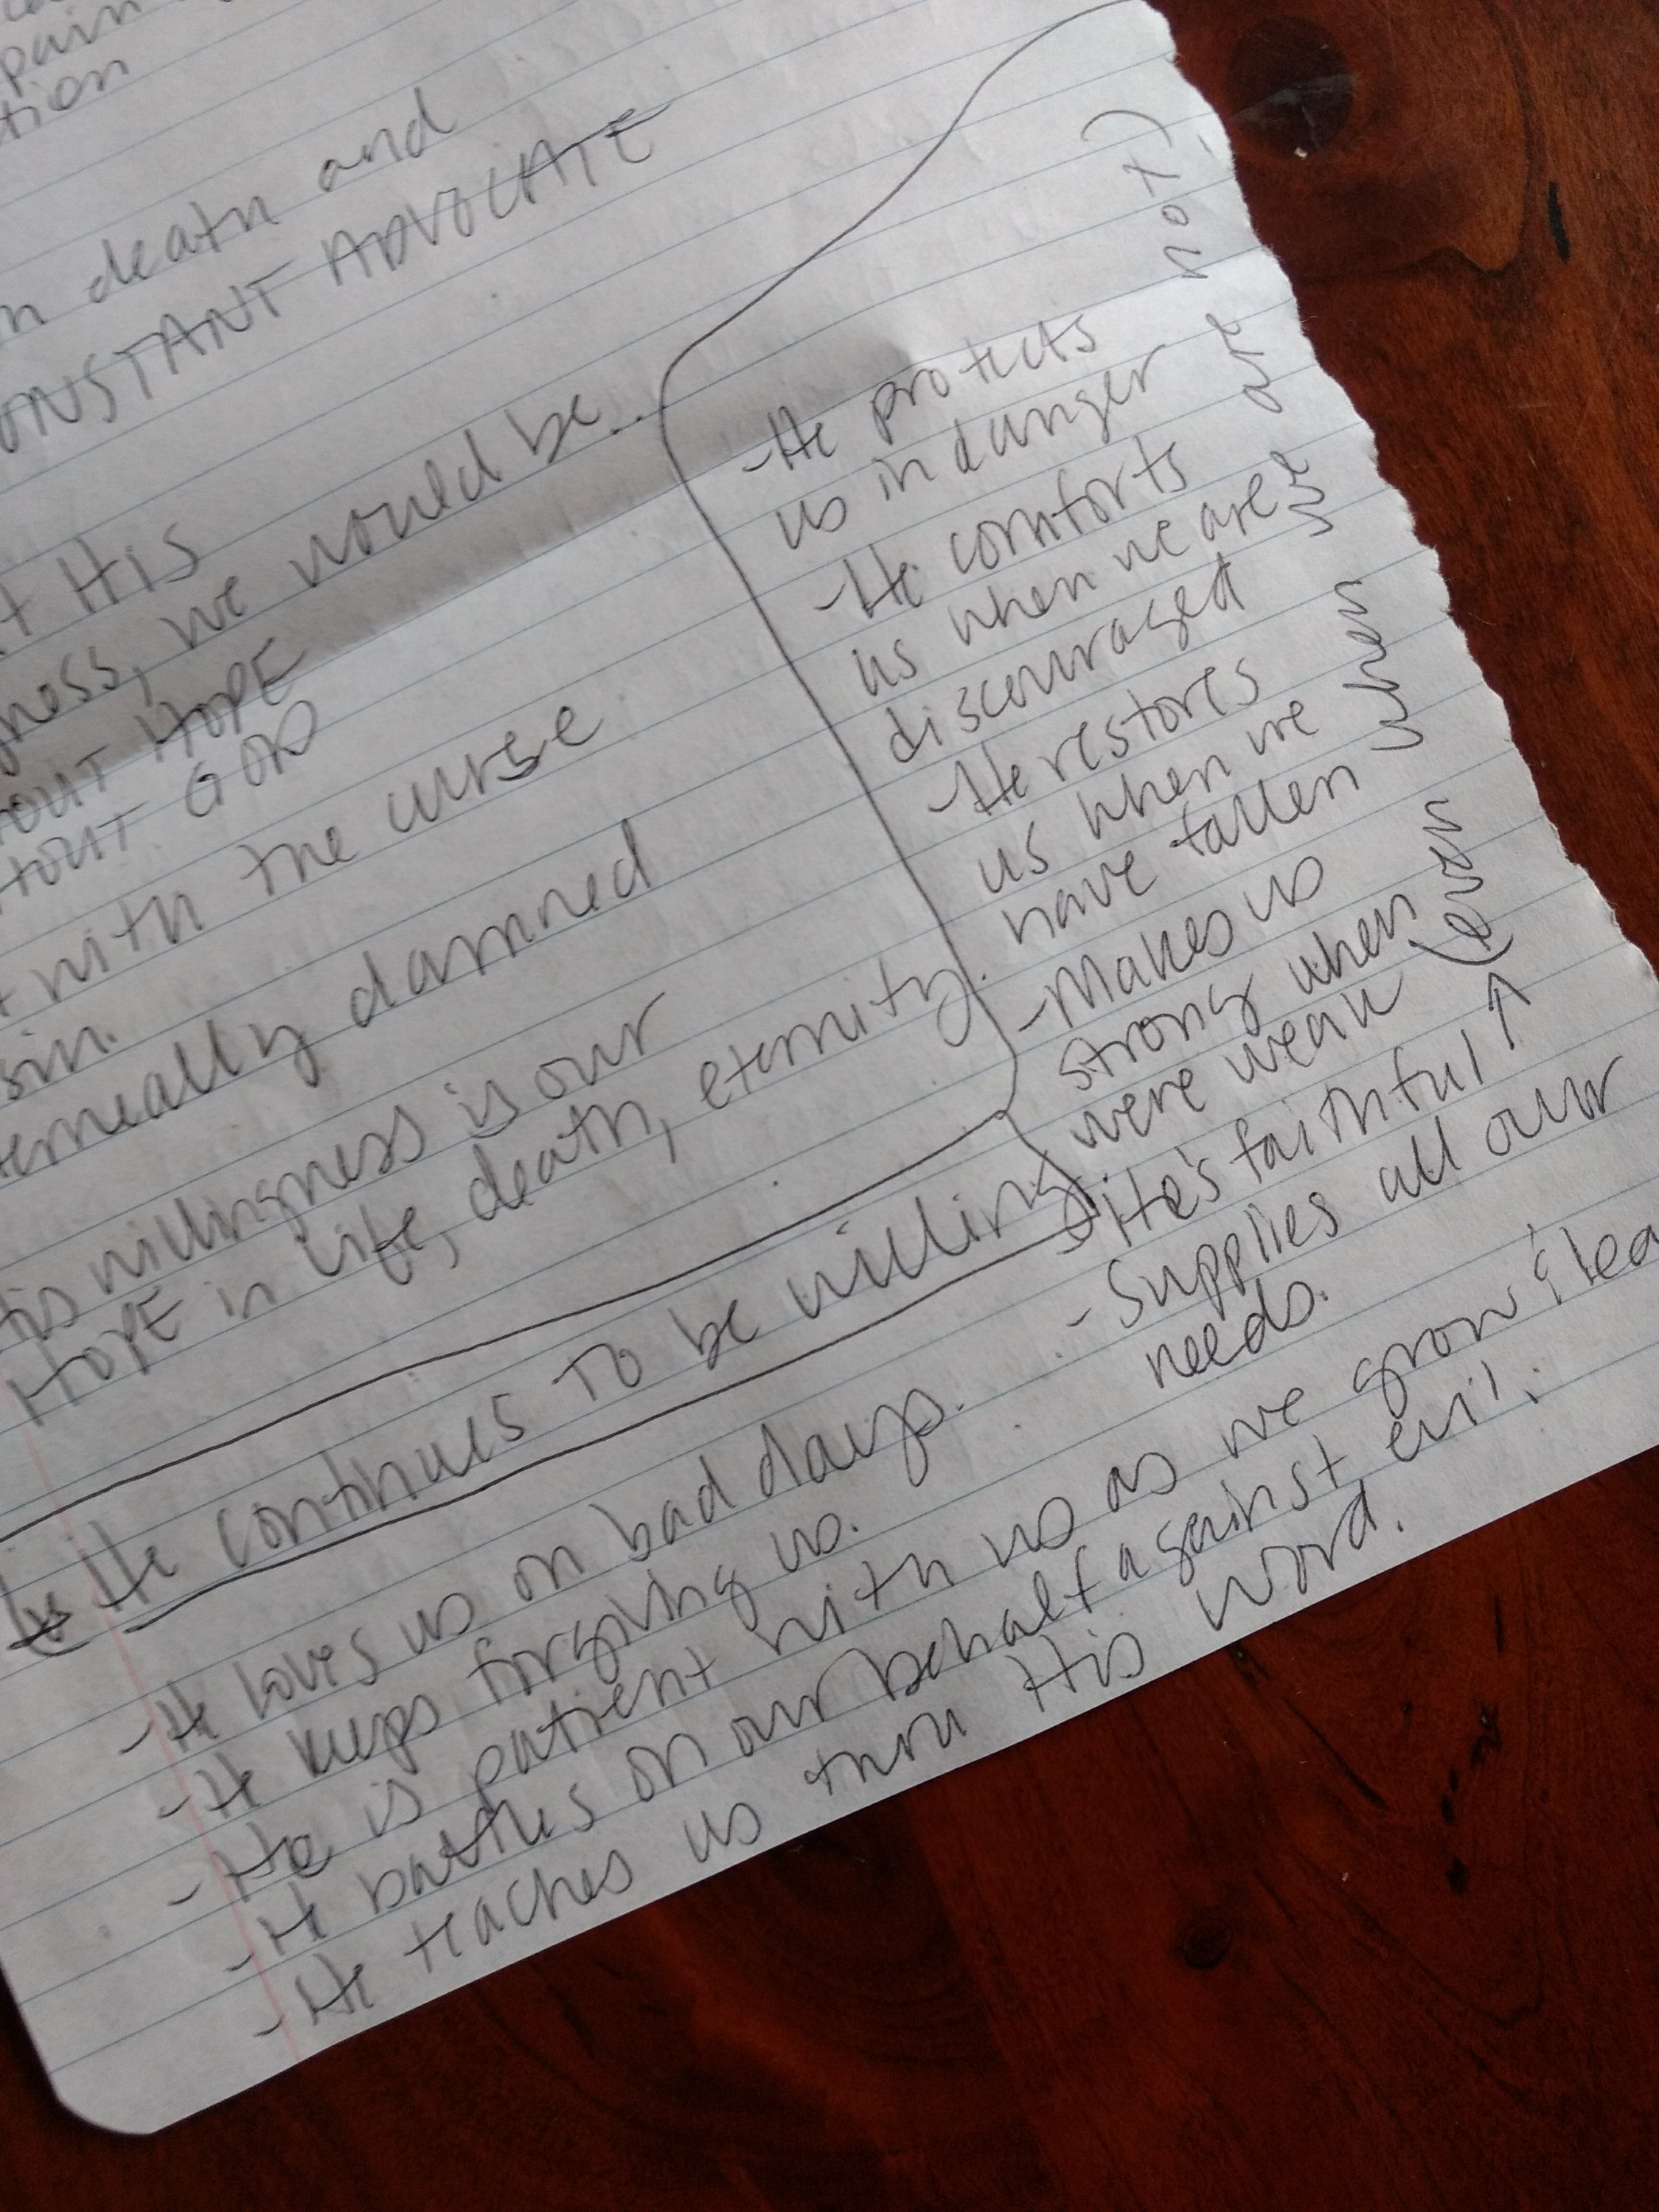 pain
tion
death and
ONSTANT ADVOCATE
His
ness, we would be..
OUT HOPE
HOUT GOD
with the curse
sin.
ternally damned
willingness is our
HOPE in life, death, eternity.
He continues to be willing
- He loves us on bad days.
- He keeps forgiving us.
- He is patient with us as we grow & lea
- He battles on our behalf against evil.
- He teaches us thru His word.
- He protects
us in danger
- He comforts
us when we are
discouraged
- He restores
us when we
have fallen
- Makes us
strong when
were weak
- He's faithful ↑
(even when we are not)
- Supplies all our
needs.